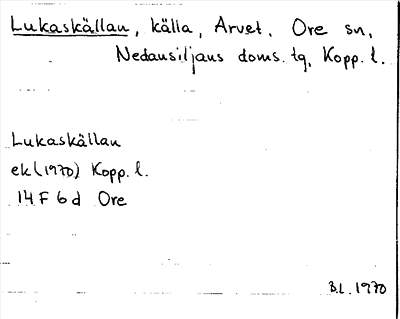 Lukaskällan, källa, Arvet, Ore sn,
Nedansiljans doms. tg, Kopp. l.
Lukaskällan
ek (1970) Kopp. l.
14 F 6 d Ore
B.L. 1970